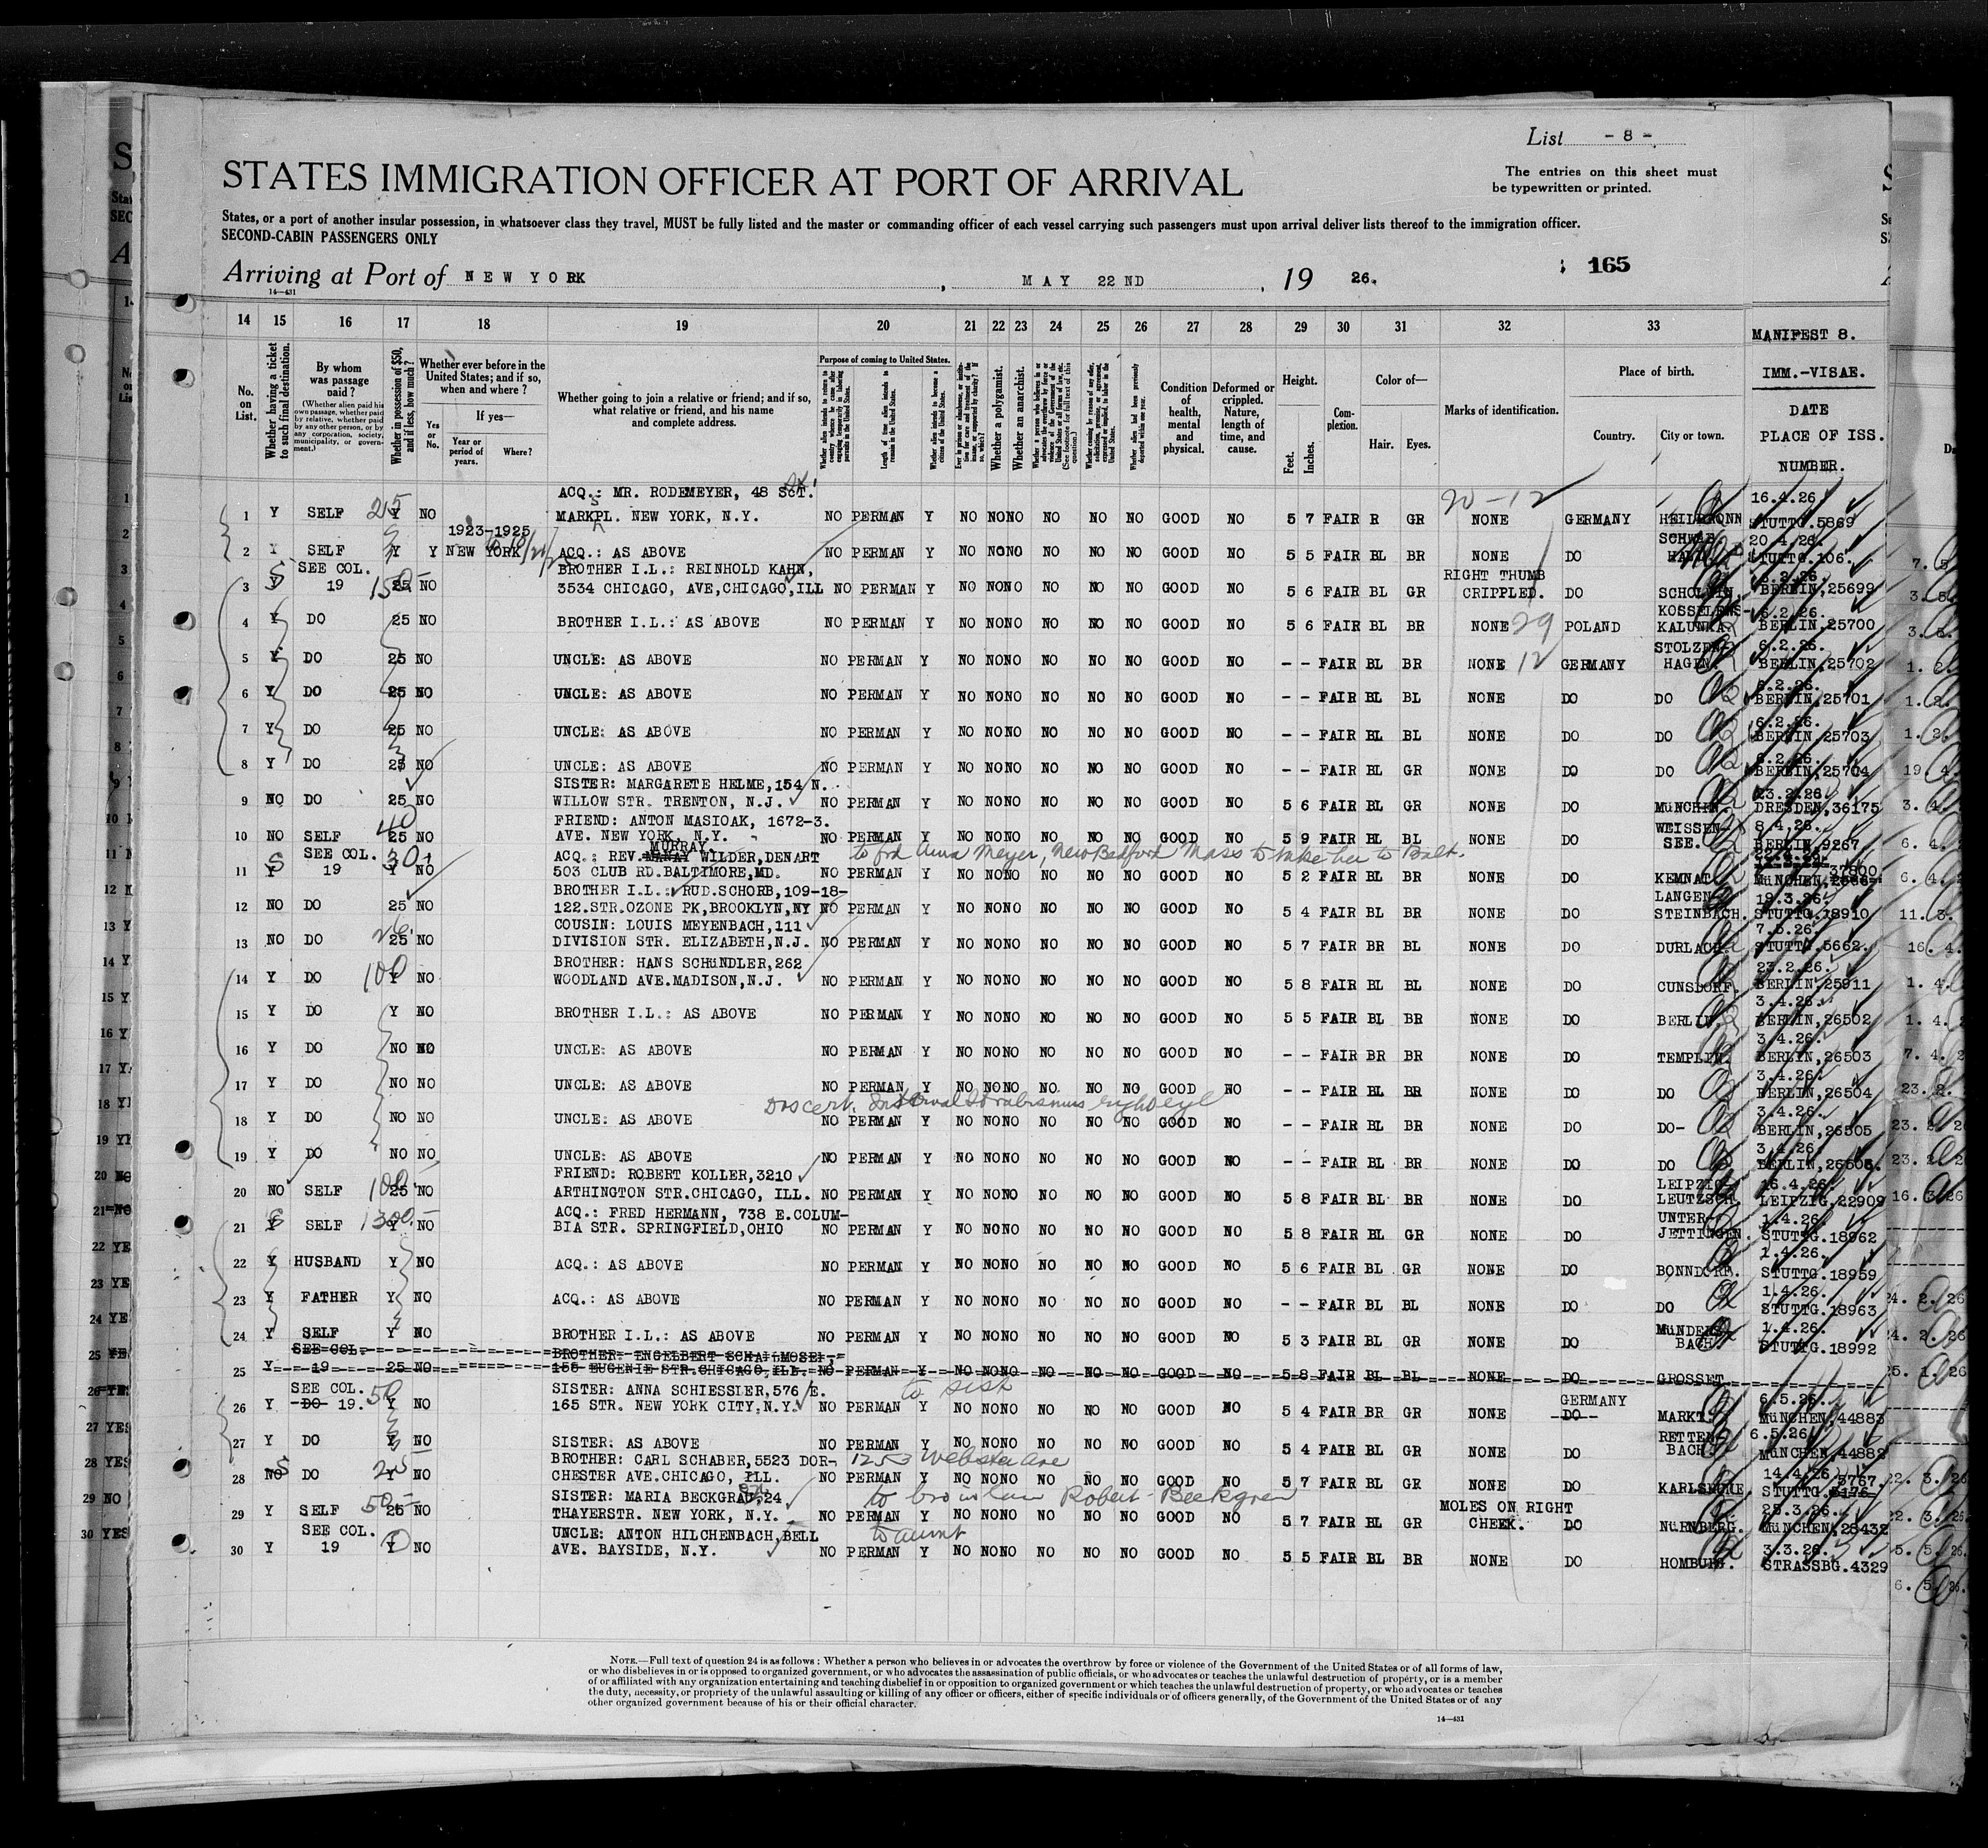 List - 8 -
STATES IMMIGRATION OFFICER AT PORT OF ARRIVAL
The entries on this sheet must
be typewritten or printed.
States, or a port of another insular possession, in whatsoever class they travel, MUST be fully listed and the master or commanding officer of each vessel carrying such passengers must upon arrival deliver lists thereof to the immigration officer.
SECOND-CABIN PASSENGERS ONLY
Arriving at Port of NEW YORK, MAY 22ND, 1926.
165
14—431
14 15 16 17 18 19 20 21 22 23 24 25 26 27 28 29 30 31 32 33
MANIFEST 8.
IMM.-VISAE.
DATE
PLACE OF ISS.
NUMBER.
No. on List.
Whether having a ticket to such final destination.
By whom was passage paid?
(Whether alien paid his own passage, whether paid by relative, whether paid by any other person, or by any corporation, society, municipality, or government.)
Whether in possession of $50, and if less, how much?
Whether ever before in the United States; and if so, when and where?
Yes or No.
If yes—
Year or period of years.
Where?
Whether going to join a relative or friend; and if so, what relative or friend, and his name and complete address.
Purpose of coming to United States.
Length of time alien intends to remain in the United States.
Whether alien intends to become a citizen of the United States.
Whether a polygamist.
Whether an anarchist.
Condition of health, mental and physical.
Deformed or crippled. Nature, length of time, and cause.
Height.
Feet.
Inches.
Complexion.
Color of—
Hair.
Eyes.
Marks of identification.
Place of birth.
Country.
City or town.
ACQ.: MR. RODEMEYER, 48 ScT. 20-12 16.4.26.
1 Y SELF 25 Y NO MARKPL. NEW YORK, N.Y. NO PERMAN Y NO NO NO NO NO NO GOOD NO 5 7 FAIR R GR NONE GERMANY HEILBRONN STUTTG.5869
1923-1925 SCHWAB. 20.4.26.
2 Y SELF Y Y NEW YORK ACQ.: AS ABOVE NO PERMAN Y NO NO NO NO NO NO GOOD NO 5 5 FAIR BL BR NONE DO HALL STUTTG.106.
SEE COL. BROTHER I.L.: REINHOLD KAHN, RIGHT THUMB 6.2.26.
3 Y 19 150 25 NO 3534 CHICAGO, AVE,CHICAGO,ILL NO PERMAN Y NO NO NO NO NO NO GOOD NO 5 6 FAIR BL GR CRIPPLED. DO BERLIN,25699
6.2.26.
4 Y DO 25 NO BROTHER I.L.: AS ABOVE NO PERMAN Y NO NO NO NO NO NO GOOD NO 5 6 FAIR BL BR NONE 29 POLAND KALUNKA. BERLIN.25700
6.2.26.
5 Y DO 25 NO UNCLE: AS ABOVE NO PERMAN Y NO NO NO NO NO NO GOOD NO - - FAIR BL BR NONE 12 GERMANY HAGEN. BERLIN.25702
6.2.26.
6 Y DO 25 NO UNCLE: AS ABOVE NO PERMAN Y NO NO NO NO NO NO GOOD NO - - FAIR BL BL NONE DO DO BERLIN,25701
6.2.26.
7 Y DO 25 NO UNCLE: AS ABOVE NO PERMAN Y NO NO NO NO NO NO GOOD NO - - FAIR BL BL NONE DO DO BERLIN,25703
6.2.26.
8 Y DO 25 NO UNCLE: AS ABOVE NO PERMAN Y NO NO NO NO NO NO GOOD NO - - FAIR BL GR NONE DO DO BERLIN,25704
SISTER: MARGARETE HELME,154 N. 23.2.26.
9 NO DO 25 NO WILLOW STR. TRENTON, N.J. NO PERMAN Y NO NO NO NO NO NO GOOD NO 5 6 FAIR BL GR NONE DO MüNCHEN. DRESDEN,36175
FRIEND: ANTON MASIOAK, 1672-3. WEISSEN- 8.4.26.
10 NO SELF 40 25 NO AVE. NEW YORK, N.Y. NO PERMAN Y NO NO NO NO NO NO GOOD NO 5 9 FAIR BL BL NONE DO SEE. BERLIN.9267
SEE COL. 30 MURRAY
ACQ.: REV. MANAY WILDER,DENART to frd Anna Meyer, New Bedford Mass to take her to Balt.
11 Y 19 Y NO 503 CLUB RD.BALTIMORE,MD. NO PERMAN Y NO NO NO NO NO NO GOOD NO 5 2 FAIR BL BR NONE DO KEMNAT. MüNCHEN, 37800
BROTHER I.L.: RUD.SCHORB,109-18- LANGEN- 19.3.26.
12 NO DO 25 NO 122.STR.OZONE PK,BROOKLYN,NY NO PERMAN Y NO NO NO NO NO NO GOOD NO 5 4 FAIR BL BR NONE DO STEINBACH. STUTTG.18910
COUSIN: LOUIS MEYENBACH,111 7.5.26.
13 NO DO 25 NO DIVISION STR. ELIZABETH,N.J. NO PERMAN Y NO NO NO NO NO NO GOOD NO 5 7 FAIR BR BL NONE DO DURLACH. STUTTG.5662.
BROTHER: HANS SCHüNDLER,262 23.2.26.
14 Y DO 100 Y NO WOODLAND AVE.MADISON,N.J. NO PERMAN Y NO NO NO NO NO NO GOOD NO 5 8 FAIR BL BL NONE DO CUNSDORF. BERLIN,25911
3.4.26.
15 Y DO Y NO BROTHER I.L.: AS ABOVE NO PERMAN Y NO NO NO NO NO NO GOOD NO 5 5 FAIR BL BR NONE DO BERLIN. BERLIN,26502
3.4.26.
16 Y DO NO NO UNCLE: AS ABOVE NO PERMAN Y NO NO NO NO NO NO GOOD NO - - FAIR BR BR NONE DO TEMPLIN. BERLIN,26503
3.4.26.
17 Y DO NO NO UNCLE: AS ABOVE NO PERMAN Y NO NO NO NO NO NO GOOD NO - - FAIR BL BR NONE DO DO BERLIN,26504
Dr's cert. Internal Strabismus right eye 3.4.26.
18 Y DO NO NO UNCLE: AS ABOVE NO PERMAN Y NO NO NO NO NO NO GOOD NO - - FAIR BL BR NONE DO DO- BERLIN,26505
3.4.26.
19 Y DO NO NO UNCLE: AS ABOVE NO PERMAN Y NO NO NO NO NO NO GOOD NO - - FAIR BL BR NONE DO DO BERLIN,26506.
FRIEND: ROBERT KOLLER,3210 LEIPZIG- 16.4.26.
20 NO SELF 100 25 NO ARTHINGTON STR.CHICAGO, ILL. NO PERMAN Y NO NO NO NO NO NO GOOD NO 5 8 FAIR BL BR NONE DO LEUTZSCH. LEIPZIG,22909
ACQ.: FRED HERMANN, 738 E.COLUM- UNTER- 1.4.26.
21 Y SELF 1300 Y NO BIA STR. SPRINGFIELD,OHIO NO PERMAN Y NO NO NO NO NO NO GOOD NO 5 8 FAIR BL GR NONE DO JETTINGEN. STUTTG.18962
1.4.26.
22 Y HUSBAND Y NO ACQ.: AS ABOVE NO PERMAN Y NO NO NO NO NO NO GOOD NO 5 6 FAIR BL GR NONE DO BONNDORF. STUTTG.18959
1.4.26.
23 Y FATHER Y NO ACQ.: AS ABOVE NO PERMAN Y NO NO NO NO NO NO GOOD NO - - FAIR BL BL NONE DO DO STUTTG.18963
1.4.26.
24 Y SELF Y NO BROTHER I.L.: AS ABOVE NO PERMAN Y NO NO NO NO NO NO GOOD NO 5 3 FAIR BL GR NONE DO BACH. STUTTG.18992
SEE COL. BROTHER: ENGELBERT
25 Y 19 25 NO 155 EUGENIE STR.CHICAGO,ILL. NO PERMAN Y NO NO NO NO NO NO GOOD NO 5 8 FAIR BL BL NONE DO GROSSET.
SEE COL. 50 SISTER: ANNA SCHIESSLER,576 E. to sist GERMANY 6.5.26.
26 Y DO 19. Y NO 165 STR. NEW YORK CITY,N.Y. NO PERMAN Y NO NO NO NO NO NO GOOD NO 5 4 FAIR BR GR NONE DO MARKT. MüNCHEN,44883
RETTEN- 6.5.26.
27 Y DO Y NO SISTER: AS ABOVE NO PERMAN Y NO NO NO NO NO NO GOOD NO 5 4 FAIR BL GR NONE DO BACH. MüNCHEN,44882
BROTHER: CARL SCHABER,5523 DOR- 1253 Webster Ave 14.4.26. 3767.
28 NO DO 25 Y NO CHESTER AVE.CHICAGO, ILL. NO PERMAN Y NO NO NO NO NO NO GOOD NO 5 7 FAIR BL GR NONE DO KARLSRUHE. STUTTG.
SISTER: MARIA BECKGRAD,24 to bro in law Robert Beckgren MOLES ON RIGHT 25.3.26.
29 Y SELF 50 25 NO THAYERSTR. NEW YORK, N.Y. NO PERMAN Y NO NO NO NO NO NO GOOD NO 5 7 FAIR BL GR CHEEK. DO NüRNBERG. MüNCHEN,28432
SEE COL. UNCLE: ANTON HILCHENBACH,BELL to aunt 3.3.26.
30 Y 19 Y NO AVE. BAYSIDE, N.Y. NO PERMAN Y NO NO NO NO NO NO GOOD NO 5 5 FAIR BL BR NONE DO HOMBURG. STRASSBG.4329
NOTE.—Full text of question 24 is as follows: Whether a person who believes in or advocates the overthrow by force or violence of the Government of the United States or of all forms of law,
or who disbelieves in or is opposed to organized government, or who advocates the assassination of public officials, or who advocates or teaches the unlawful destruction of property, or is a member
of or affiliated with any organization entertaining and teaching disbelief in or opposition to organized government or which teaches the unlawful destruction of property, or who advocates or teaches
the duty, necessity, or propriety of the unlawful assaulting or killing of any officer or officers, either of specific individuals or of officers generally, of the Government of the United States or of any
other organized government because of his or their official character.
14—431